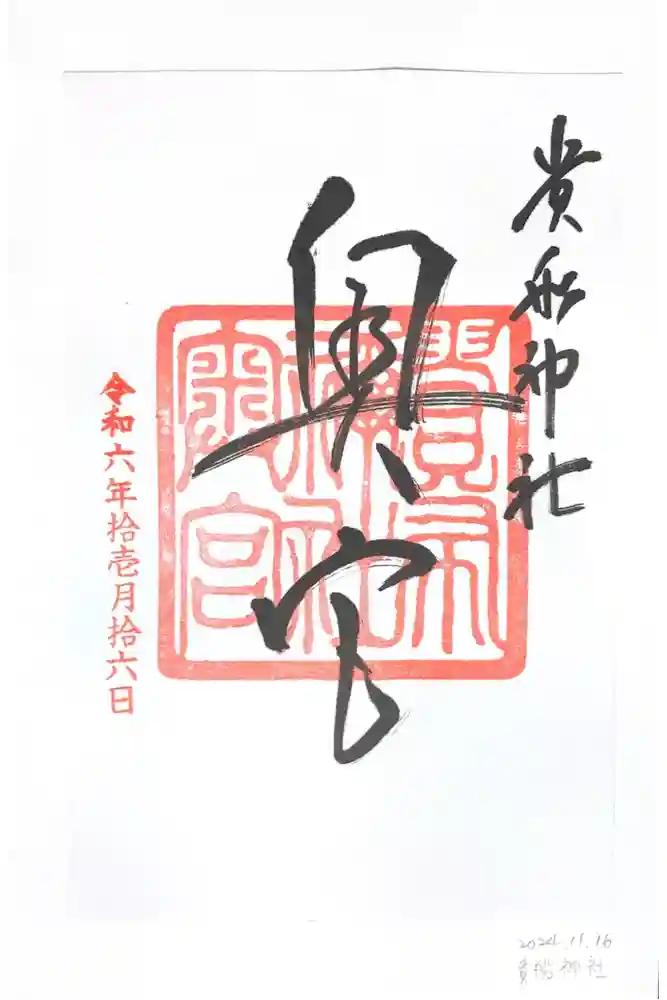 貴船神社
奥宮
貴布
禰社
奥宮
令和六年拾壱月拾六日
2024.11.16
貴船神社